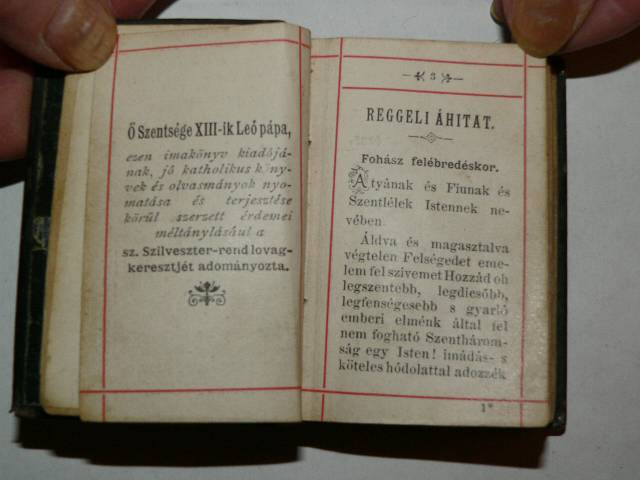 Ő Szentsége XIII-ik Leó pápa,
ezen imakönyv kiadójá-
nak, jó katholikus köny-
vek és olvasmányok nyo-
matása és terjesztése
körül szerzett érdemei
méltánylásául a
sz. Szilveszter-rend lovag-
keresztjét adományozta.
3
REGGELI ÁHITAT.
Fohász felébredéskor.
Atyának és Fiunak és
Szentlélek Istennek ne-
vében.
Áldva és magasztalva
végtelen Felségedet eme-
lem fel szivemet Hozzád oh
legszentebb, legdicsőbb,
legfenségesebb s gyarló
emberi elménk által fel
nem fogható Szenthárom-
ság egy Isten! imádás- s
köteles hódolattal adozzék
1*